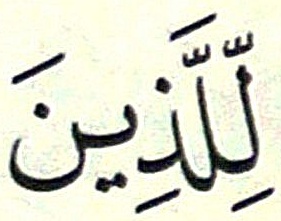 لِّلَّذِينَ